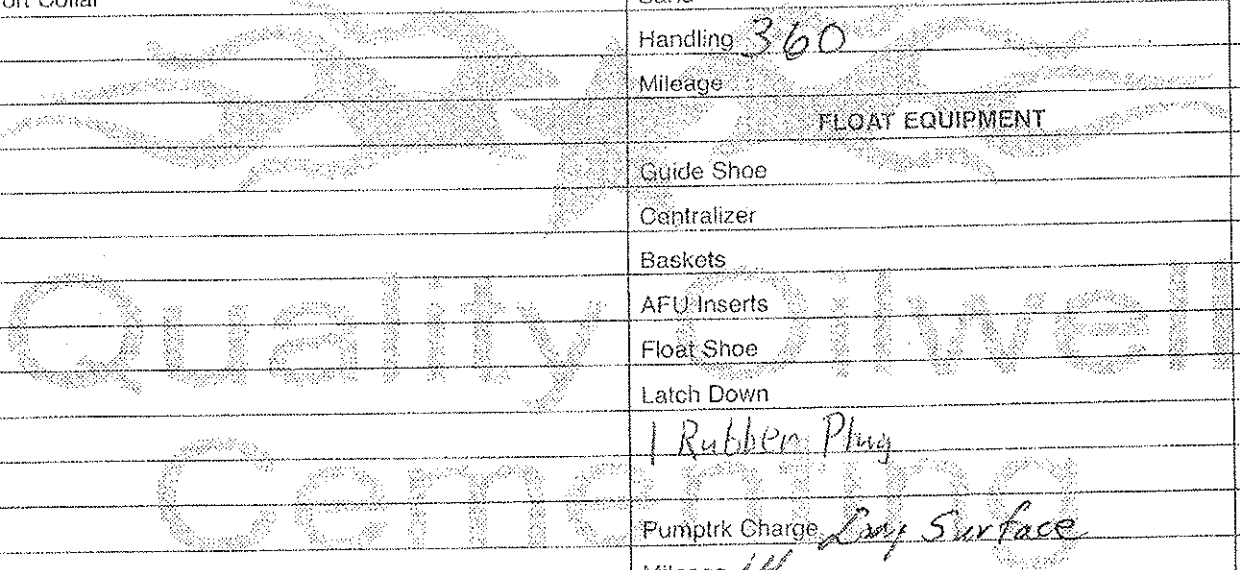 ort Collar
Sand
Handling 360
Mileage
FLOAT EQUIPMENT
Guide Shoe
Centralizer
Baskets
AFU Inserts
Float Shoe
Latch Down
1 Rubber Plug
Pumptrk Charge Long Surface
Mileage 14
Quality Oilwell
Cementing